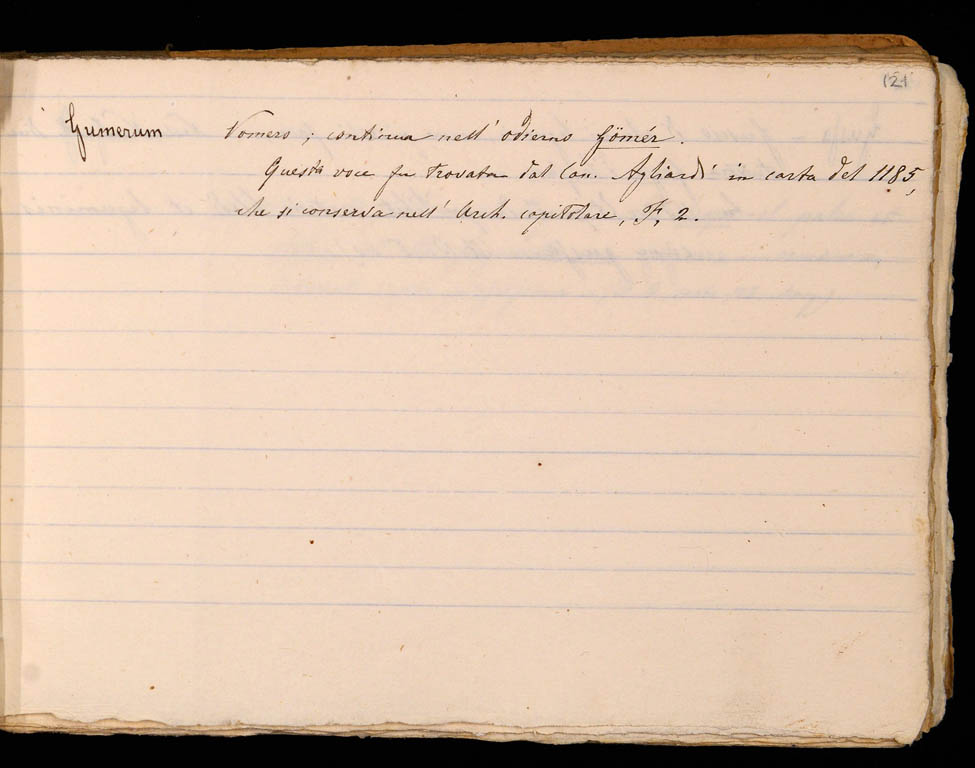 121
Gumerum Vomero; continua nell' odierno Gömér.
Questa voce fu trovata dal Can. Agliardi in carta del 1185,
che si conserva nell' Arch. capitolare, F, 2.